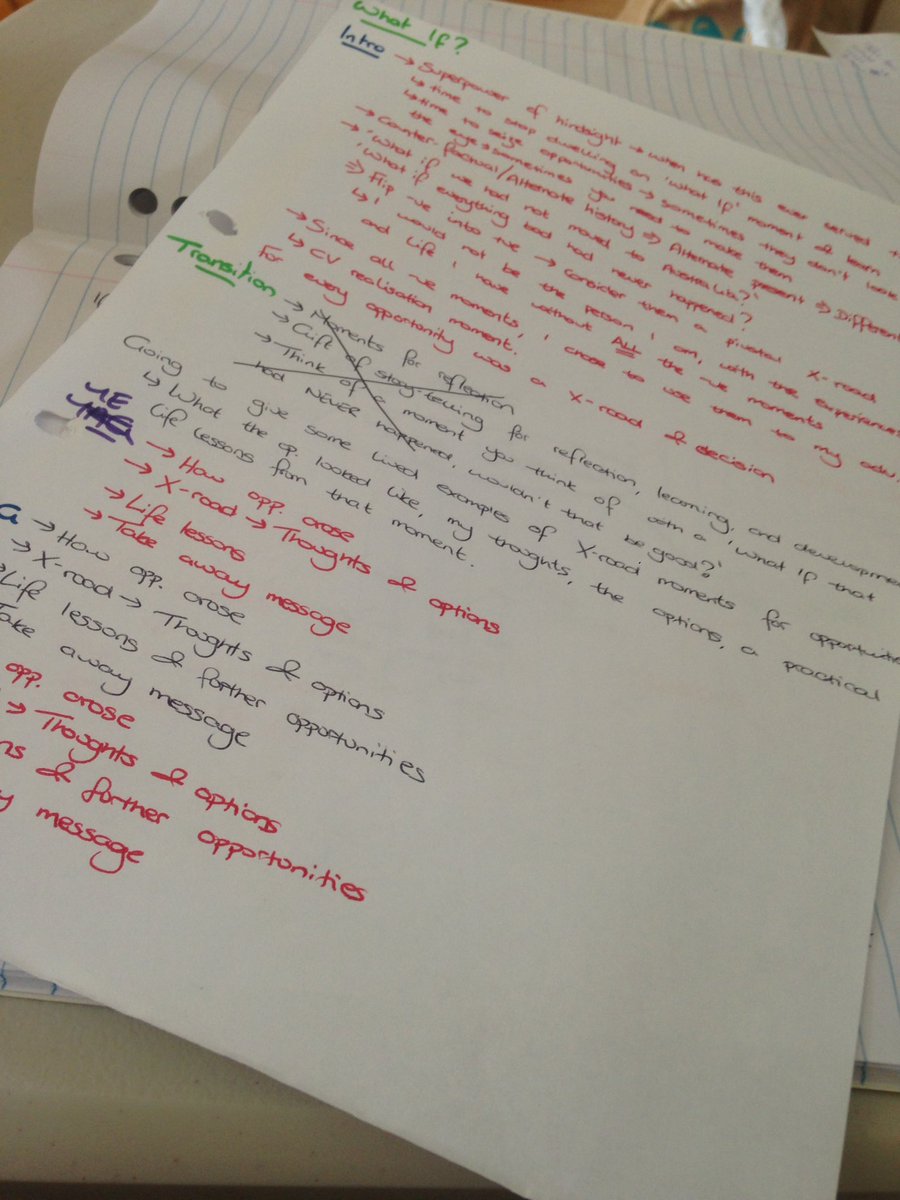 What If?
Intro
→ Superpower of hindsight → when has this ever served
↳ time to stop dwelling on 'what if' moment & learn
↳ time to seize opportunities → sometimes they don't look
the eye → sometimes you need to make them
→ Counter-factual/Alternate history ⇒ Alternate present ⇒ Different
→ 'What if we had not moved to Australia?'
'What if everything bad had never happened?
⇒ Flip -ve into +ve → Consider them a pivotal X-road
↳ I would not be the person I am, with the experiences
and life I have without ALL the -ve moments
→ Since all -ve moments, I chose to use them to my adv.
↳ CV realisation moment.
For every opportunity was a X-road & decision
Transition
→ Moments for reflection
→ Gift of story-telling for reflection, learning, and development
→ Think of a moment you think of with a 'what if that
had NEVER happened, wouldn't that be good?'
Going to give some lived examples of X-road moments for opportunities
↳ What the op. looked like, my thoughts, the options, a practical
life lessons from that moment.
YE
→ How opp. arose
→ X-road → Thoughts & options
→ Life lessons
→ Take away message
→ How opp. arose
→ X-road → Thoughts & options
Life lessons & further opportunities
Take away message
opp. arose
→ Thoughts & options
& further opportunities
message